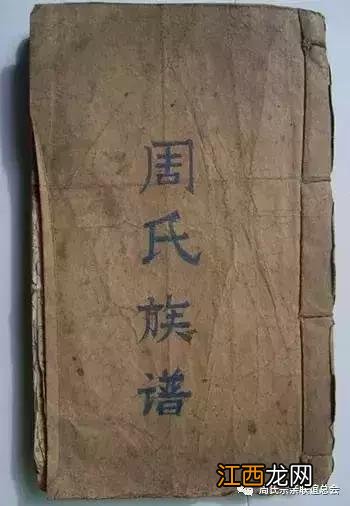 周氏族谱
江西龙网
周氏宗亲联谊总会